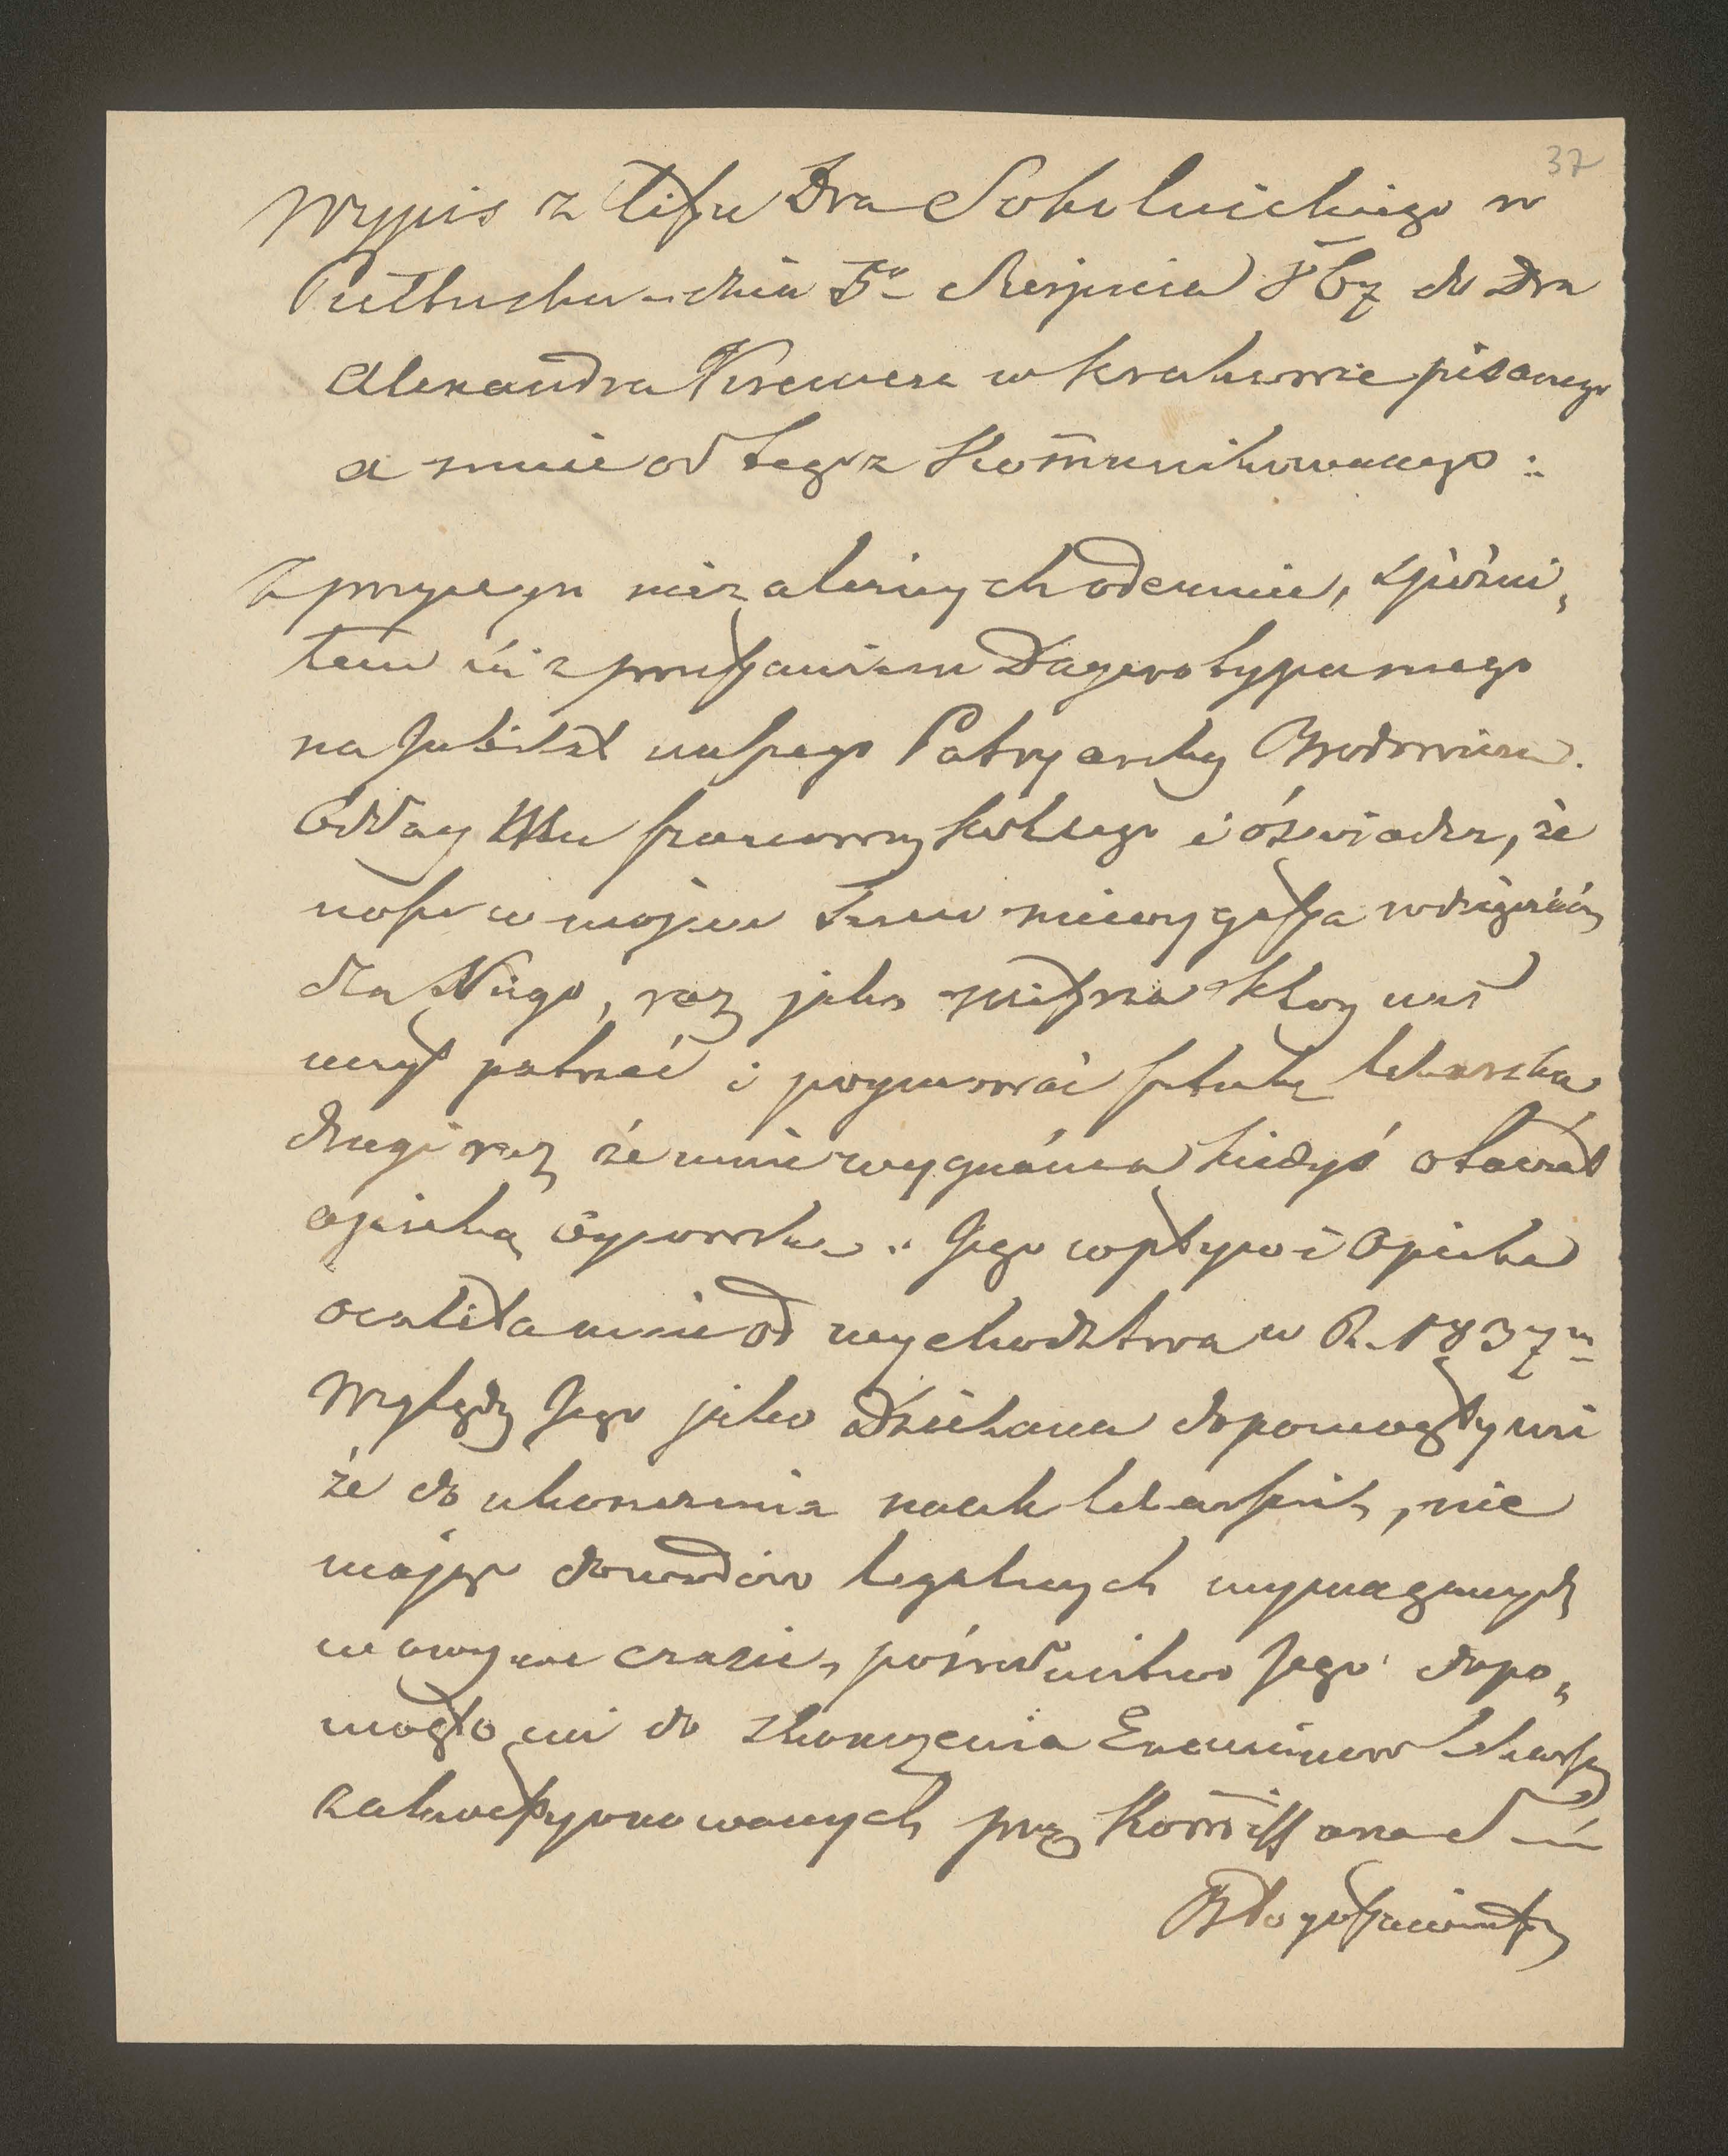 37
Wypis z listu Dra Sokolnickiego w
Pułtusku dnia 5º Sierpnia do Dra
Alexandra Kremera w Krakowie pisanego
a mnie od tegoż Kom̄unikowanego:
Z przyczyn niezależnych odemnie, spóźni„
łem się z przesłaniem Dagerotypu mego
na Jubileł naszego Patryarchy Brodowicza.
Odday Mu szanowny Kollego i óświadcz, że
noszę w mojem Sercu niewygasłą wdzięczność
dla Niego, raz jako mistrza który nas
uczył patrzeć i poymować sztukę lekarską
drugi raz że mnie wygnáńca kiedyś otaczáł
opieką Oycowską. Jego wpływ i Opieka
ocaliła mnie od wychodztwa w R. 1837m
Względy Jego jako Dziekana dopomogły mi
że do ukończenia nauk lekarskich, nie
mając dowodów legalnych wymaganych
w owym czasie, pośrednictwo Jego dopo„
mogło mi do skończenia Examinow Lekarskich
zakwestyonowanych przez Kom̄issarza